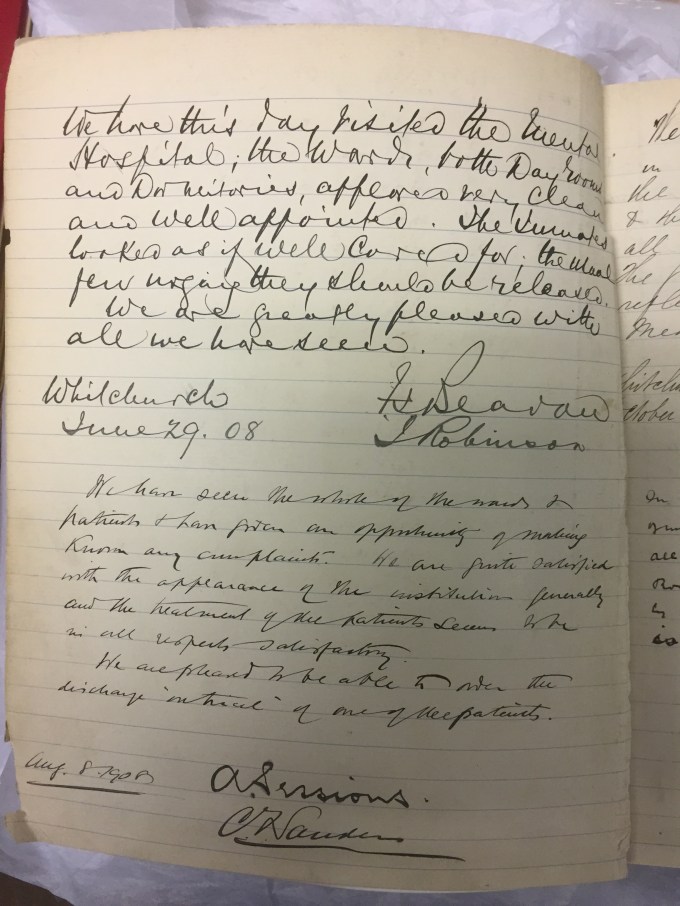 We have this day visited the Mental
Hospital; the Wards, both Day rooms
and Dormitories, appeared very clean
and well appointed. The Inmates
looked as if well cared for; the usual
few urging they should be released.
We are greatly pleased with
all we have seen.
Whitchurch
June 29. 08
Beavan
J Robinson
We have seen the whole of the wards &
patients & have given an opportunity of making
known any complaints. We are quite satisfied
with the appearance of the institution generally
and the treatment of the patients seems to be
in all respects satisfactory.
We are pleased to be able to order the
discharge "on trial" of one of the patients.
Aug. 8. 1908
A. Sessions.
C. F. Sanders
We
in
the
& th
all
The
refle
Me
hitchu
ctober
on
all
is